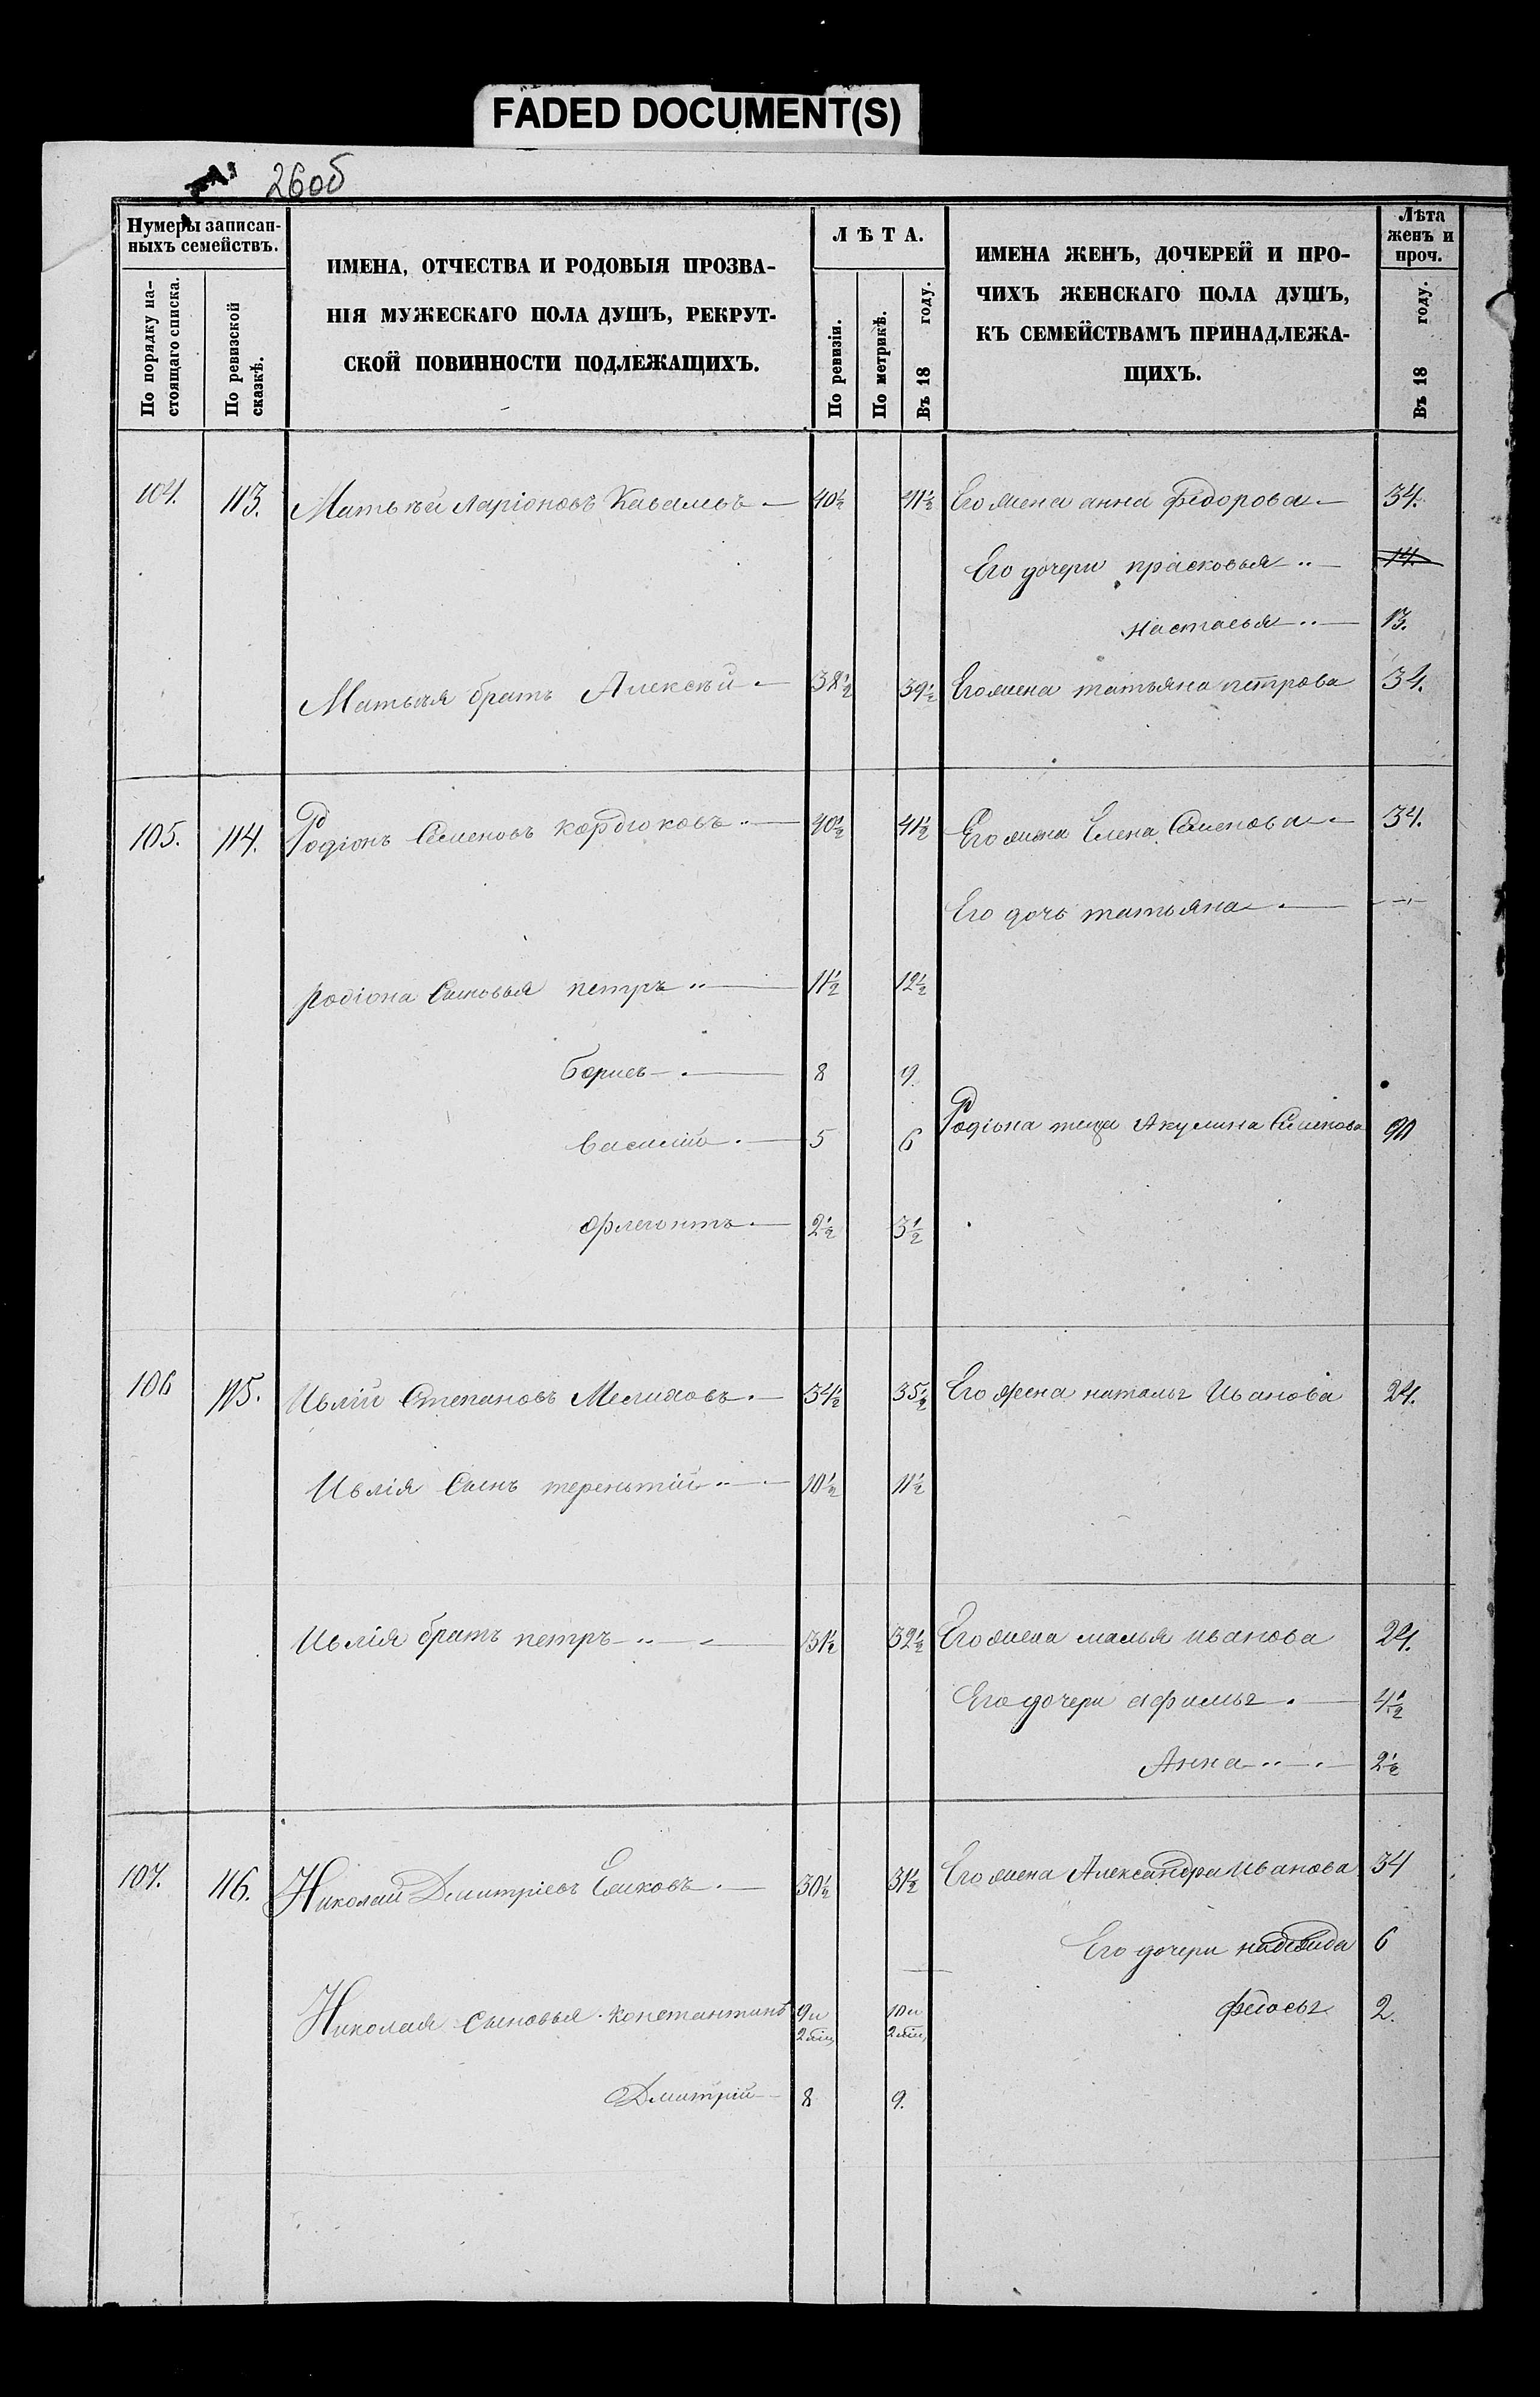 FADED DOCUMENT(S)
26об
Нумеры записан-
ныхъ семействъ.
По порядку на-
стоящаго списка.
По ревизской
сказкѣ.
ИМЕНА, ОТЧЕСТВА И РОДОВЫЯ ПРОЗВА-
НІЯ МУЖЕСКАГО ПОЛА ДУШЪ, РЕКРУТ-
СКОЙ ПОВИННОСТИ ПОДЛЕЖАЩИХЪ.
ЛѢТА.
По ревизіи.
По метрикѣ.
Въ 18 году.
ИМЕНА ЖЕНЪ, ДОЧЕРЕЙ И ПРО-
ЧИХЪ ЖЕНСКАГО ПОЛА ДУШЪ,
КЪ СЕМЕЙСТВАМЪ ПРИНАДЛЕЖА-
ЩИХЪ.
Лѣта
женъ и
проч.
Въ 18 году.
104. 113. Матвѣй Ларіоновъ 40½ 41½ Его жена анна федорова 34.
Его дочери прасковья 14.
настасья 13.
Матвѣя братъ Алексѣй 38½ 39½ Его жена татьяна петрова 34.
105. 114. Родіонъ Семеновъ кордюковъ 40½ 41½ Его жена Елена Семенова 34.
Его дочь татьяна
Родіона Сыновья петръ 11½ 12½
Борисъ 8 9.
Василій 5 6 Родіона теща Акулина Семенова 90
Флегонтъ 2½ 3½
106 115. Ивлій Степановъ Мелиховъ 34½ 35½ Его жена наталья Иванова 24.
Ивлія Сынъ терентій 10½ 11½
Ивлія братъ петръ 31½ 32½ Его жена иванова 24.
Его дочери афимья 4½
Анна 2½
107. 116. Николай Дмитріевъ 30½ 31½ Его жена Александра иванова 34
Его дочери надежда 6
Николая сыновья константинъ 9 и 2 міц. 10 и 2 міц. федосья 2.
Дмитрій 8 9.